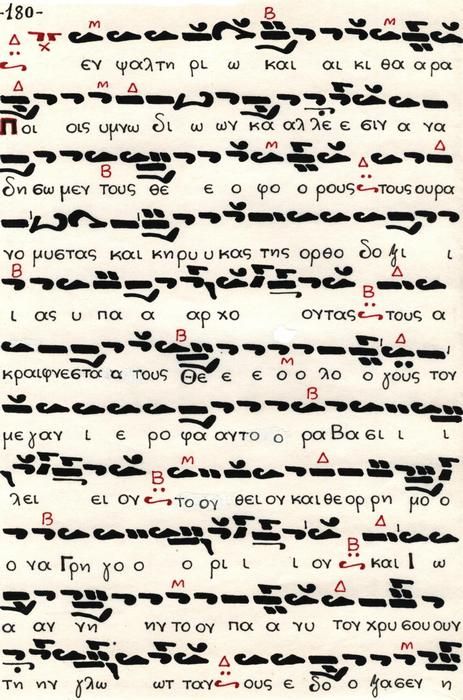 -180-
εν ψαλτη ρι ω και αι κι θα αρα
Ποι οις υμνω δι ω ων κα αλ λε ε σιν α να
δη σω μεν τους θε ε ο φο ο ρους τους ουρα
νο μυστας και κηρυ υ κας της ορθο δο ξι ι
ι ας υ πα α αρ χο οντας τους α
κραιφνεστα α τους Θε ε ε ο ο λο ο γους τον
με γαν ι ε ρο φα αντο ο ρα Βα σι ι ι
λει ει ον το ον θειον και θε ορ ρη μο ο
ο να Γρη γο ο ο ρι ι ι ον και Ι ω
α αν νη ην το ον πα α νυ τον χρυ σουουν
τη ην γλω ωτ ταν ους ε δο ο ξασεν η